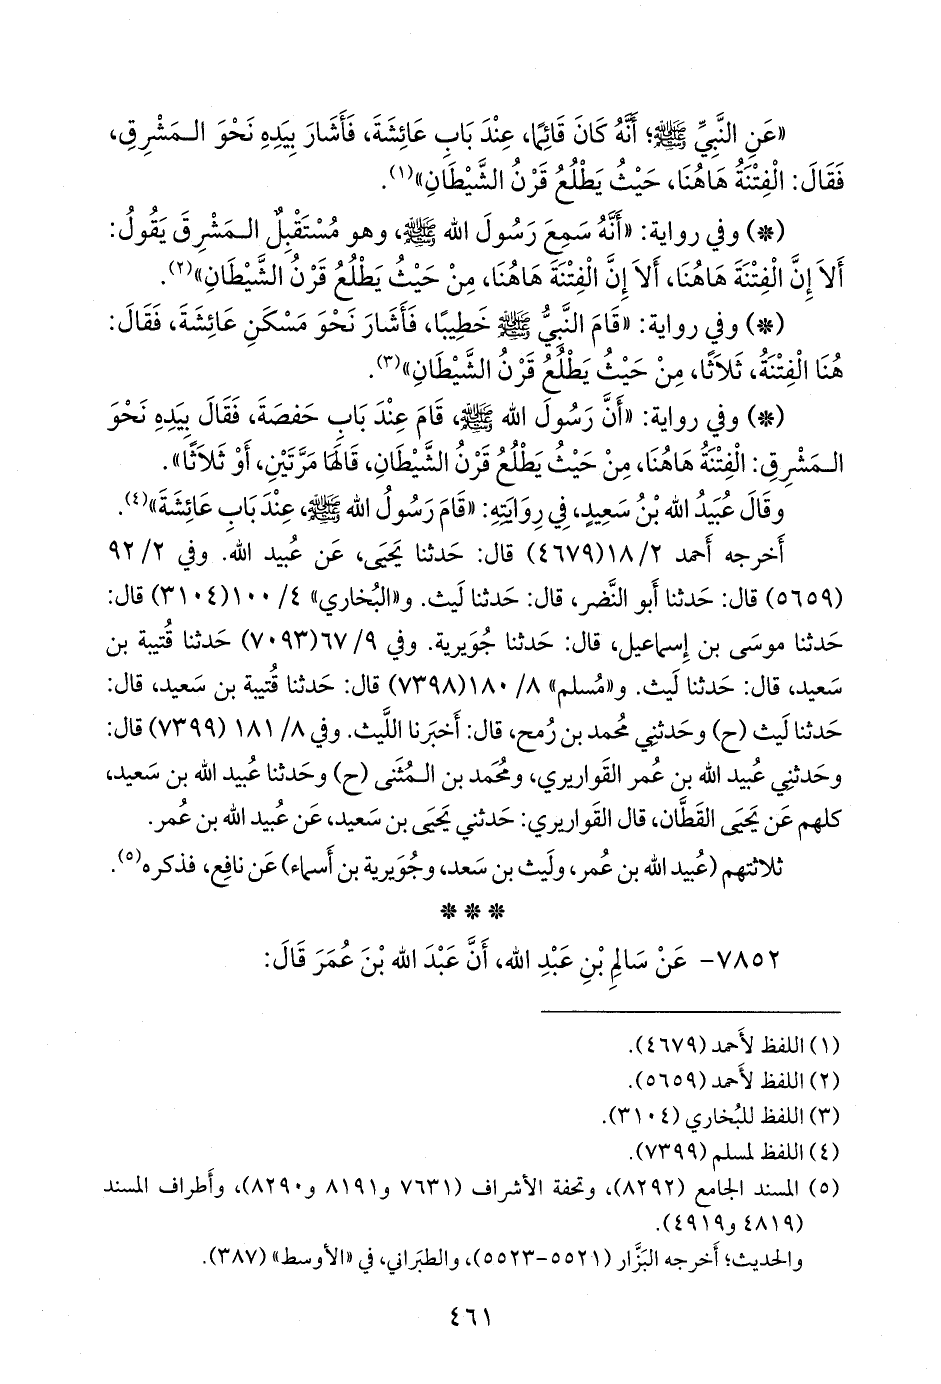 «عَنِ النَّبِيِّ ﷺ؛ أَنَّهُ كَانَ قَائِمًا، عِنْدَ بَابِ عَائِشَةَ، فَأَشَارَ بِيَدِهِ نَحْوَ الـمَشْرِقِ،
فَقَالَ: الْفِتْنَةُ هَاهُنَا، حَيْثُ يَطْلُعُ قَرْنُ الشَّيْطَانِ»(١).
(*) وفي رواية: «أَنَّهُ سَمِعَ رَسُولَ الله ﷺ، وهو مُسْتَقْبِلٌ الـمَشْرِقَ يَقُولُ:
أَلاَ إِنَّ الْفِتْنَةَ هَاهُنَا، أَلاَ إِنَّ الْفِتْنَةَ هَاهُنَا، مِنْ حَيْثُ يَطْلُعُ قَرْنُ الشَّيْطَانِ»(٢).
(*) وفي رواية: «قَامَ النَّبِيُّ ﷺ خَطِيبًا، فَأَشَارَ نَحْوَ مَسْكَنِ عَائِشَةَ، فَقَالَ:
هُنَا الْفِتْنَةُ، ثَلاَثًا، مِنْ حَيْثُ يَطْلُعُ قَرْنُ الشَّيْطَانِ»(٣).
(*) وفي رواية: «أَنَّ رَسُولَ الله ﷺ، قَامَ عِنْدَ بَابِ حَفصَةَ، فَقَالَ بِيَدِهِ نَحْوَ
الـمَشْرِقِ: الْفِتْنَةُ هَاهُنَا، مِنْ حَيْثُ يَطْلُعُ قَرْنُ الشَّيْطَانِ، قَالَهَا مَرَّتَيْنِ، أَوْ ثَلاَثًا».
وقَالَ عُبَيدُ الله بْنُ سَعِيدٍ، فِي رِوَايَتِهِ: «قَامَ رَسُولُ الله ﷺ، عِنْدَ بَابِ عَائِشَةَ»(٤).
أَخرجه أَحمد ٢/ ١٨(٤٦٧٩) قال: حَدثنا يَحيَى، عَن عُبيد الله. وفي ٢/ ٩٢
(٥٦٥٩) قال: حَدثنا أَبو النَّضر، قال: حَدثنا لَيث. و«البُخاري» ٤/ ١٠٠(٣١٠٤) قال:
حَدثنا موسَى بن إِسماعيل، قال: حَدثنا جُوَيرية. وفي ٩/ ٦٧(٧٠٩٣) حَدثنا قُتيبة بن
سَعيد، قال: حَدثنا لَيث. و«مُسلم» ٨/ ١٨٠(٧٣٩٨) قال: حَدثنا قُتيبة بن سَعيد، قال:
حَدثنا لَيث (ح) وحَدثنِي مُحمد بن رُمح، قال: أَخبَرنا اللَّيث. وفي ٨/ ١٨١ (٧٣٩٩) قال:
وحَدثنِي عُبيد الله بن عُمر القَواريري، ومُحَمد بن الـمُثَنى (ح) وحَدثنا عُبيد الله بن سَعيد،
كلهم عَن يَحيَى القَطَّان، قال القَواريري: حَدثنِي يَحيَى بن سَعيد، عَن عُبيد الله بن عُمر.
ثلاثتهم (عُبيد الله بن عُمر، ولَيث بن سَعد، وجُوَيرية بن أَسماء) عَن نافِع، فذكره(٥).
* * *
٧٨٥٢- عَنْ سَالِمِ بْنِ عَبْدِ الله، أَنَّ عَبْدَ الله بْنَ عُمَرَ قَالَ:
(١) اللفظ لأَحمد (٤٦٧٩).
(٢) اللفظ لأَحمد (٥٦٥٩).
(٣) اللفظ للبُخاري (٣١٠٤).
(٤) اللفظ لمسلم (٧٣٩٩).
(٥) المسند الجامع (٨٢٩٢)، وتحفة الأشراف (٧٦٣١ و٨١٩١ و٨٢٩٠)، وأَطراف المسند
(٤٨١٩ و٤٩١٩).
والحديث؛ أَخرجه البَزَّار (٥٥٢١-٥٥٢٣)، والطبَراني، في «الأَوسط» (٣٨٧).
٤٦١